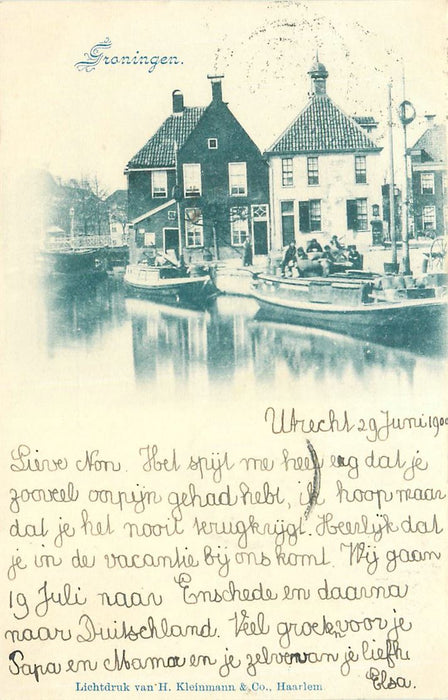 Groningen.
Utrecht 29 Juni 1900
Lieve Non. Het spijt me heel erg dat je
zooveel oorpijn gehad hebt, ik hoop maar
dat je het nooit terugkrijgt. Heerlijk dat
je in de vacantie bij ons komt. Wij gaan
19 Juli naar Enschede en daarna
naar Duitschland. Veel groeten voor je
Papa en Mama en je zelve van je liefh.
Elsa.
Lichtdruk van H. Kleinmann & Co., Haarlem